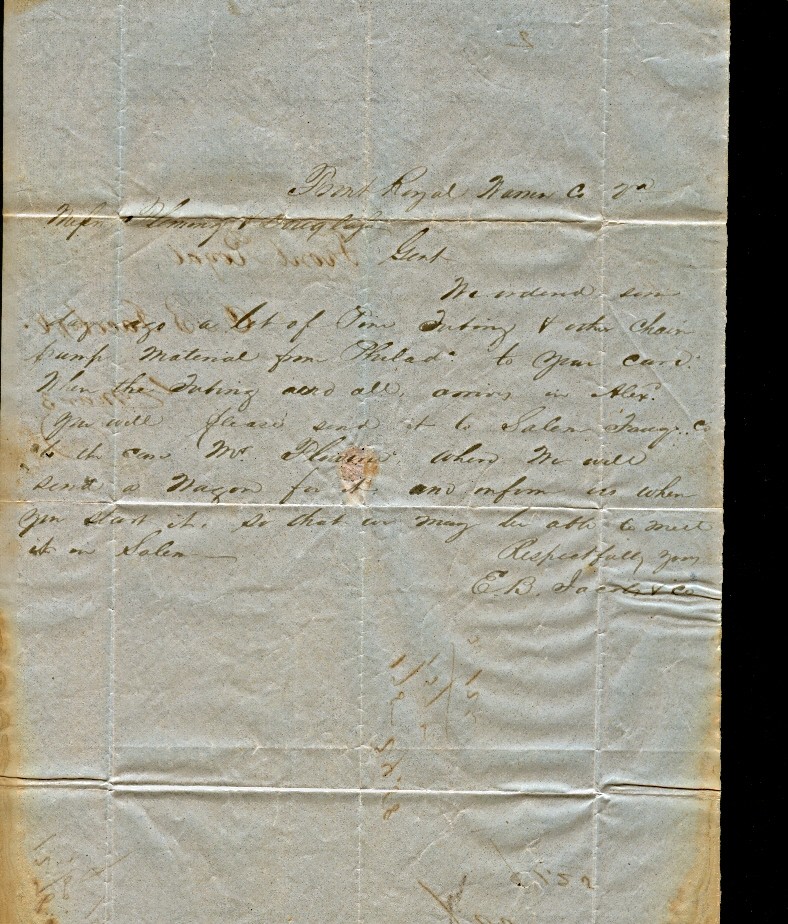 Front Royal Warren Co Va
Messrs Fleming & Douglas
Gent
We ordered some
days ago a lot of Pine Tubing & other chain
pump material from Philada to your care.
When the Tubing and all, arrives in Alexa
you will please send it to Salem Fauq. Co
to the care Mr. where we will
send a Wagon for it. and inform us when
you start it, so that we may be able to meet
it in Salem
Respectfully yours
E. B. Jacobs & Co